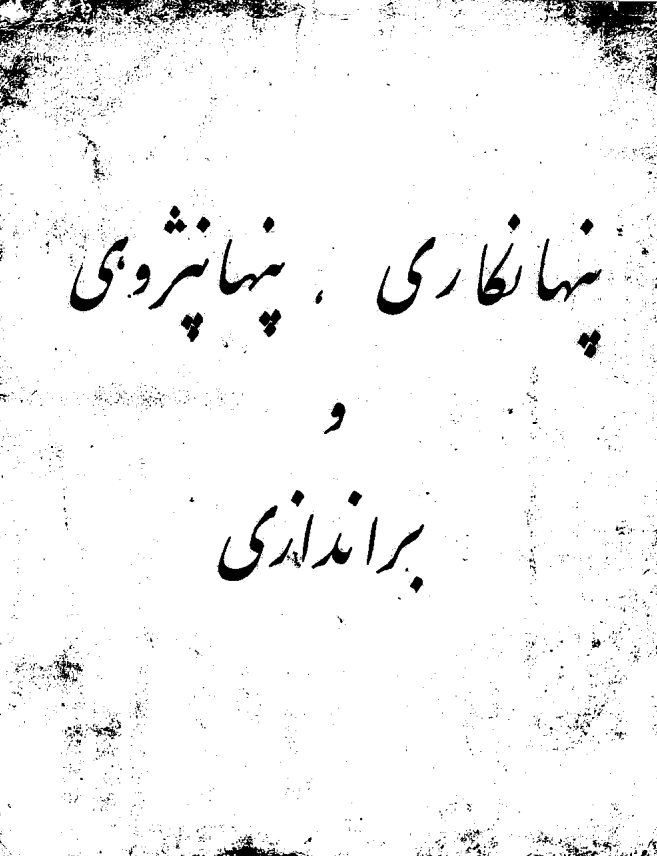 پنهانکاری ، پنهانپژوهی
و
براندازی